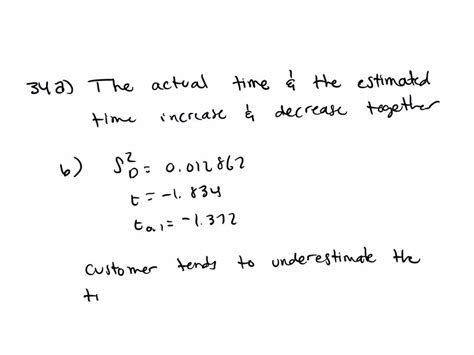 34a) The actual time & the estimated
time increase & decrease together
b) S²_D = 0.012862
t = -1.834
t0.1 = -1.372
customer tends to underestimate the
ti